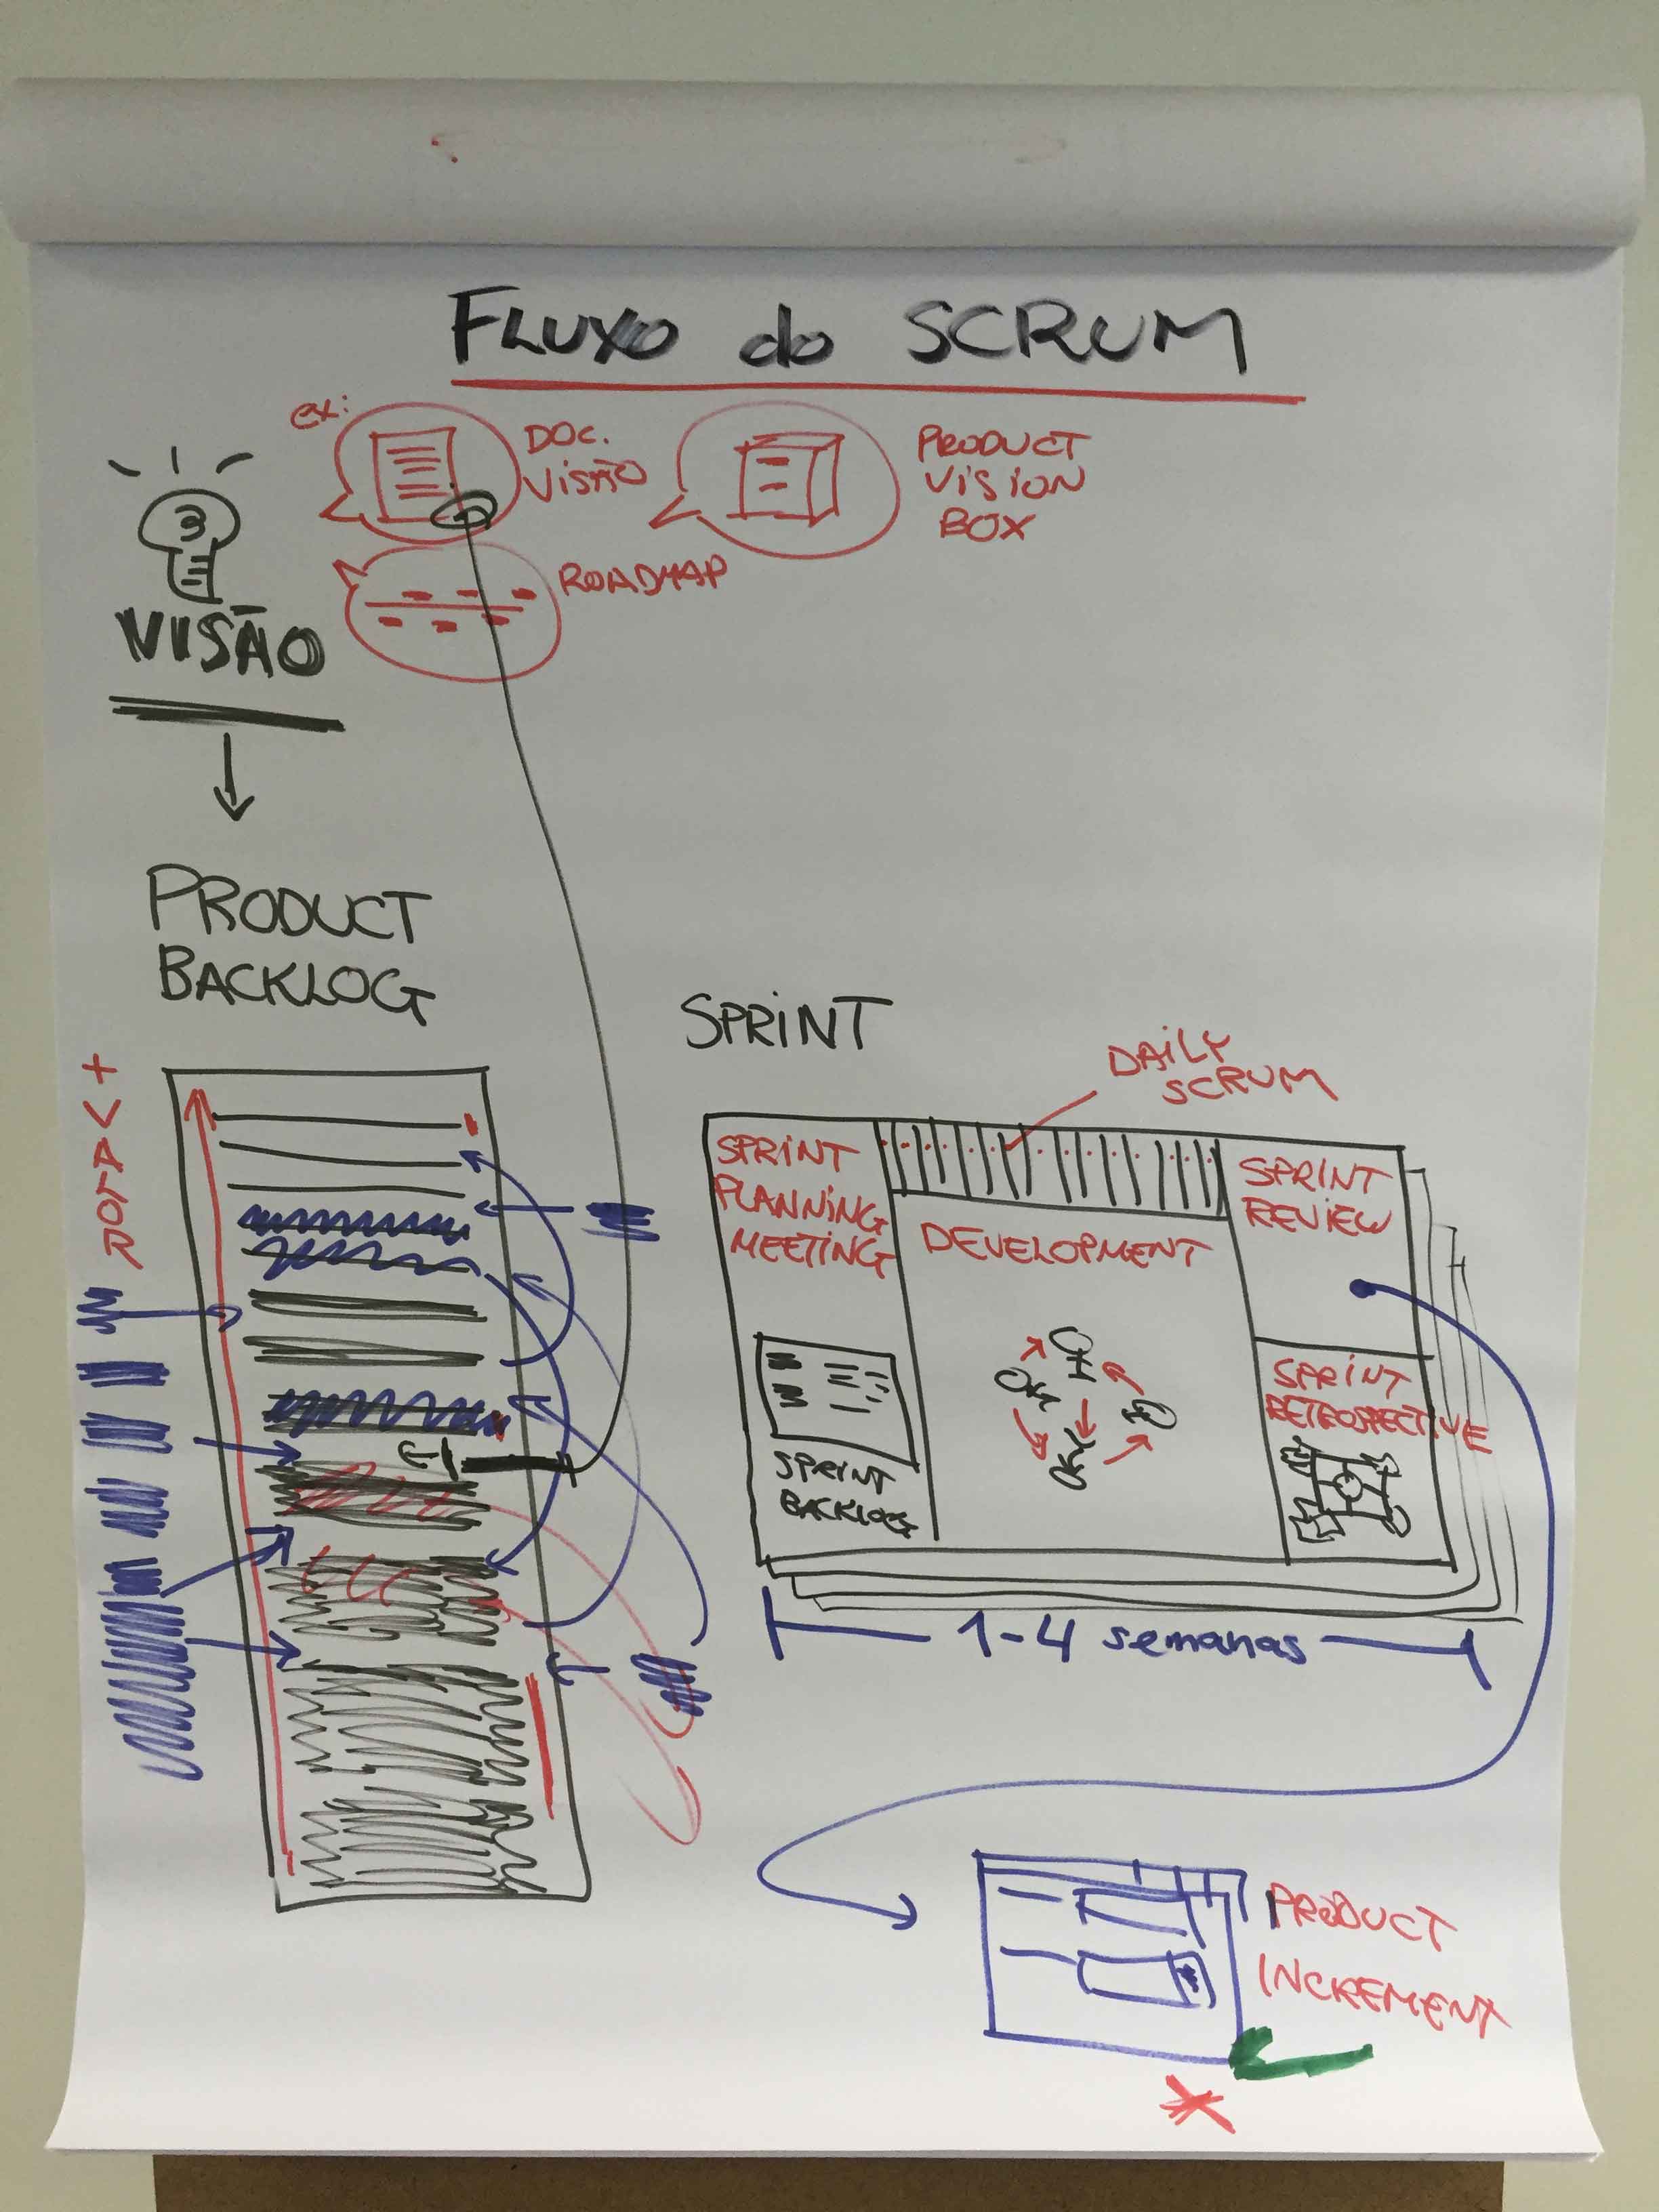 FLUXO do SCRUM
ex:
DOC.
VISÃO
PRODUCT
VISION
BOX
ROADMAP
VISÃO
PRODUCT
BACKLOG
+ VALOR
SPRINT
DAILY
SCRUM
SPRINT
PLANNING
MEETING
DEVELOPMENT
SPRINT
REVIEW
SPRINT
RETROSPECTIVE
SPRINT
BACKLOG
1-4 semanas
PRODUCT
INCREMENT